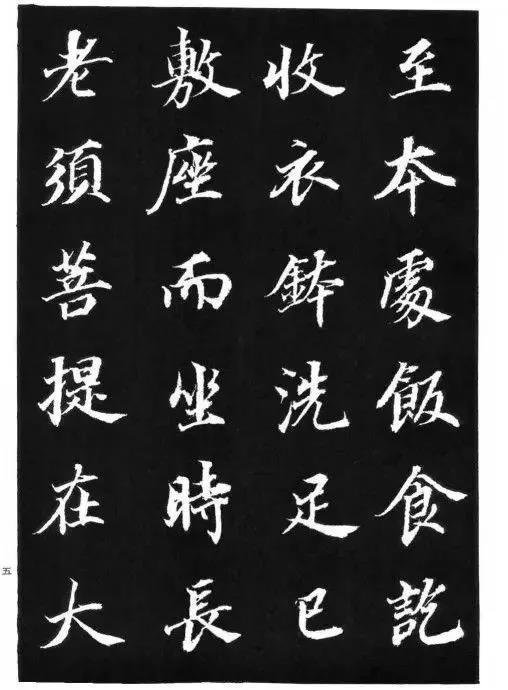 至本處飯食訖
收衣鉢洗足已
敷座而坐時長
老須菩提在大
五